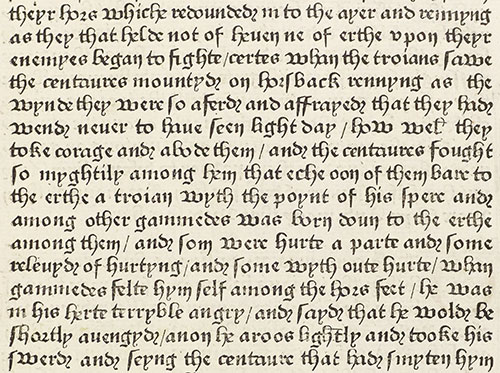 theyr hors whiche redounded in to the ayer and rennyng
as they that helde not of heuen ne of erthe vpon theyr
enemyes began to fighte / certes whan the troians sawe
the centaures mountyd on horsback rennyng as the
wynde they were so aferd and affrayed that they had
wend never to haue seen light day / how wel they
toke corage and abode them / and the centaures fought
so myghtily among hem that eche oon of them bare to
the erthe a troian wyth the poynt of his spere and
among other gammedes was born doun to the erthe
among them / and som were hurte a parte and some
releuyd of hurtyng / and some wyth oute hurte / whan
gammedes felte hym self among the hors feet / he was
in his herte terryble angry / and sayd that he wold be
shortly auengyd / anon he aroos lightly and tooke his
swerd and seyng the centaure that had smyten hym